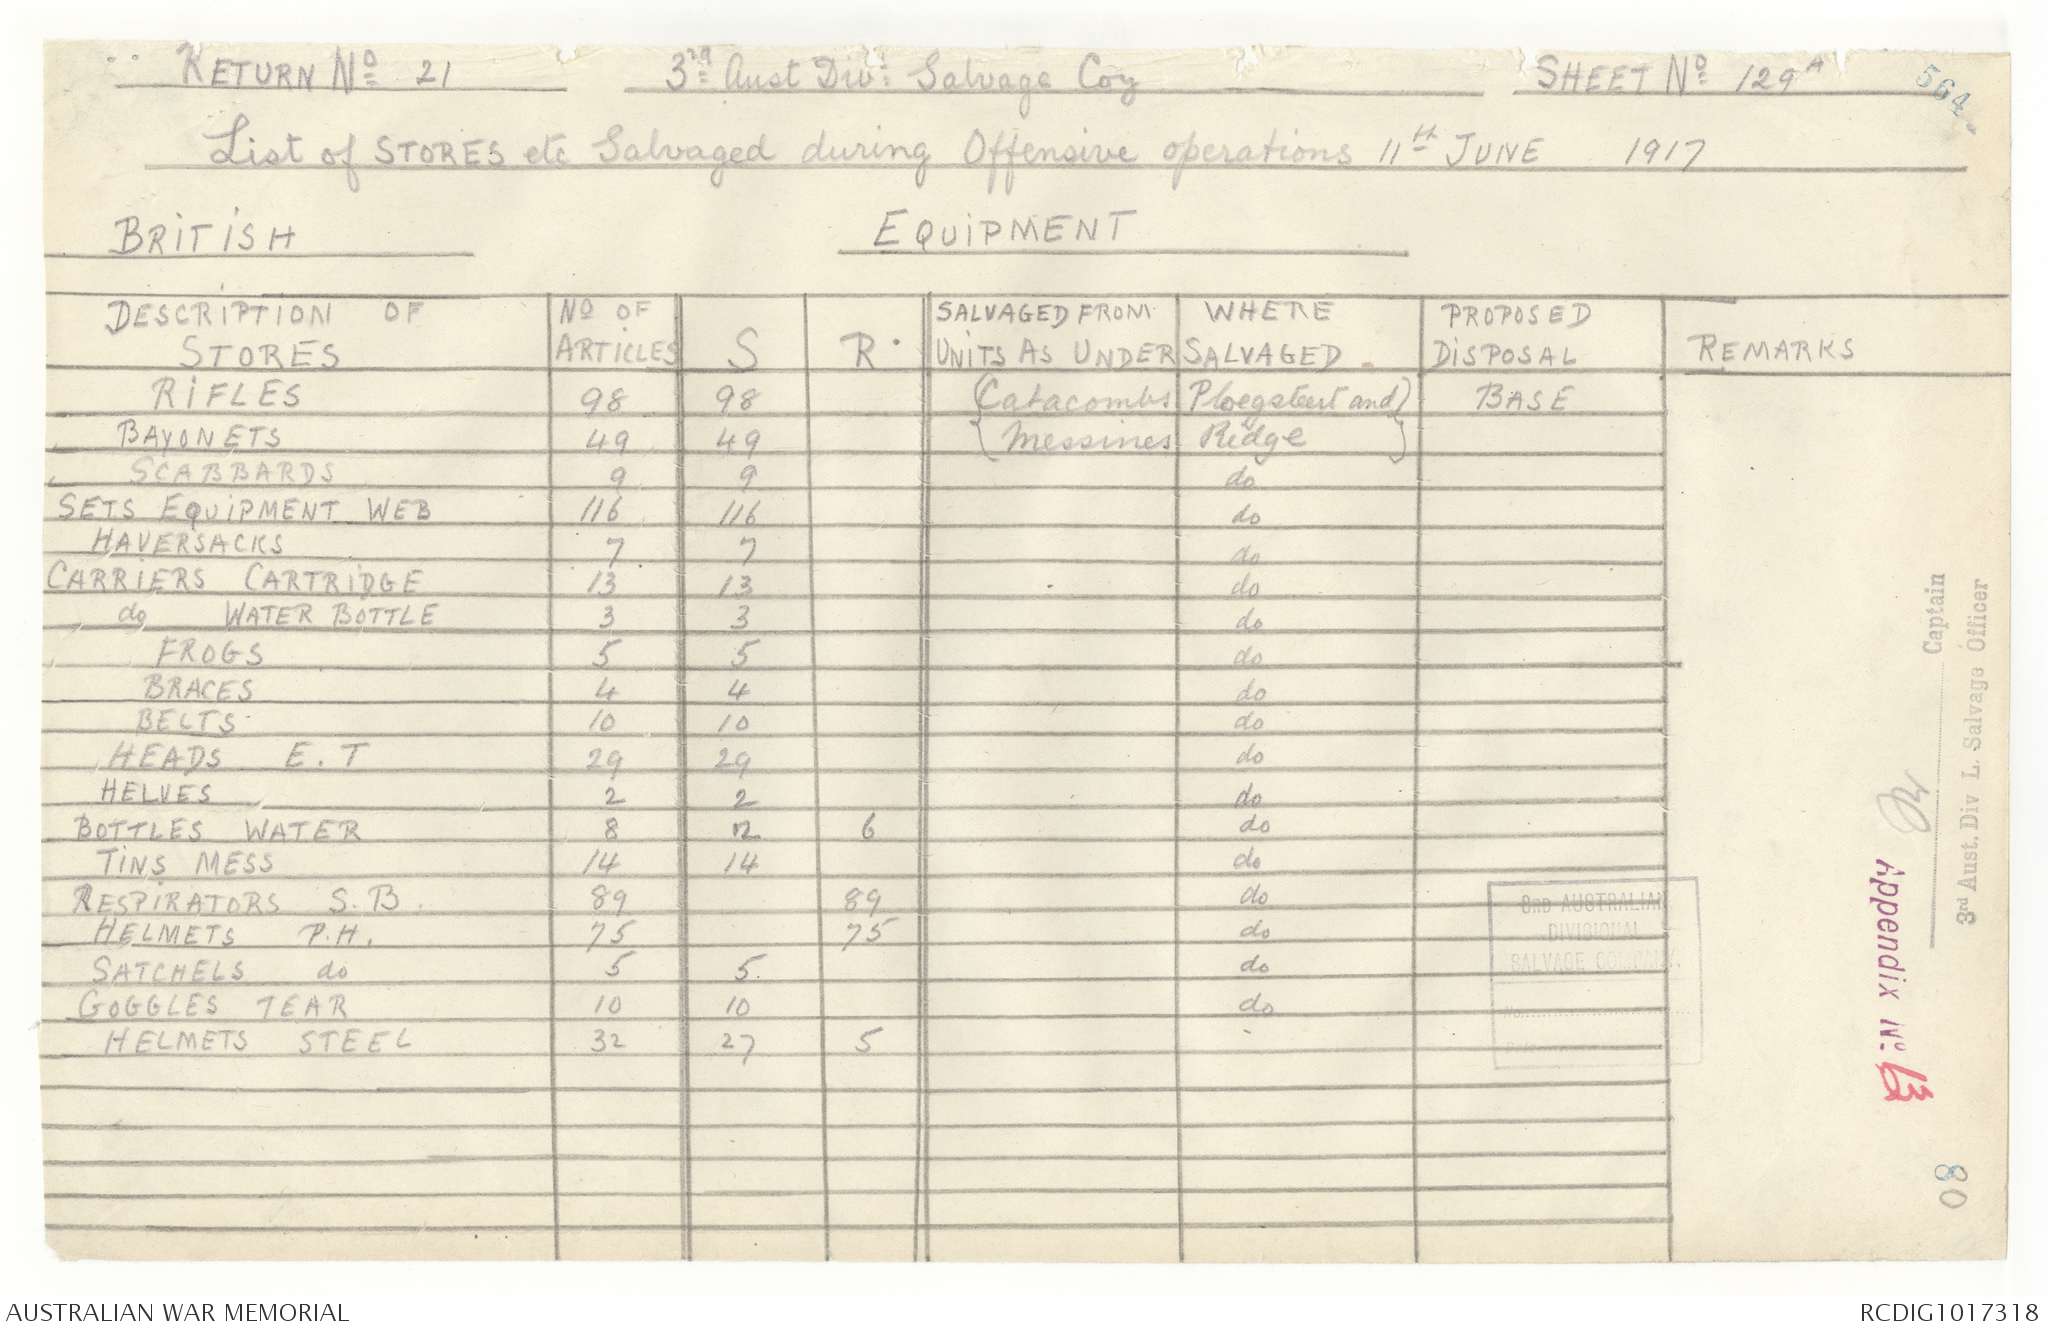 RETURN No 21 3rd Aust Div: Salvage Coy SHEET No 129A 564
List of STORES etc Salvaged during Offensive operations 11th JUNE 1917
BRITISH EQUIPMENT
DESCRIPTION OF STORES | No OF ARTICLES | S | R. | SALVAGED FROM UNITS AS UNDER | WHERE SALVAGED | PROPOSED DISPOSAL | REMARKS
RIFLES 98 98 {Catacombs Ploegsteert and} BASE
BAYONETS 49 49 {Messines Ridge}
SCABBARDS 9 9 do
SETS EQUIPMENT WEB 116 116 do
HAVERSACKS 7 7 do
CARRIERS CARTRIDGE 13 13 do
do WATER BOTTLE 3 3 do
FROGS 5 5 do
BRACES 4 4 do
BELTS 10 10 do
HEADS E.T 29 29 do
HELVES 2 2 do
BOTTLES WATER 8 2 6 do
TINS MESS 14 14 do
RESPIRATORS S.B. 89 89 do
HELMETS P.H. 75 75 do
SATCHELS do 5 5. do
GOGGLES TEAR 10 10 do
HELMETS STEEL 32 27 5
3RD AUSTRALIAN
DIVISIONAL
SALVAGE COMPANY.
No.
Captain
3rd Aust. Div L. Salvage Officer
Appendix No. 13
80
AUSTRALIAN WAR MEMORIAL RCDIG1017318